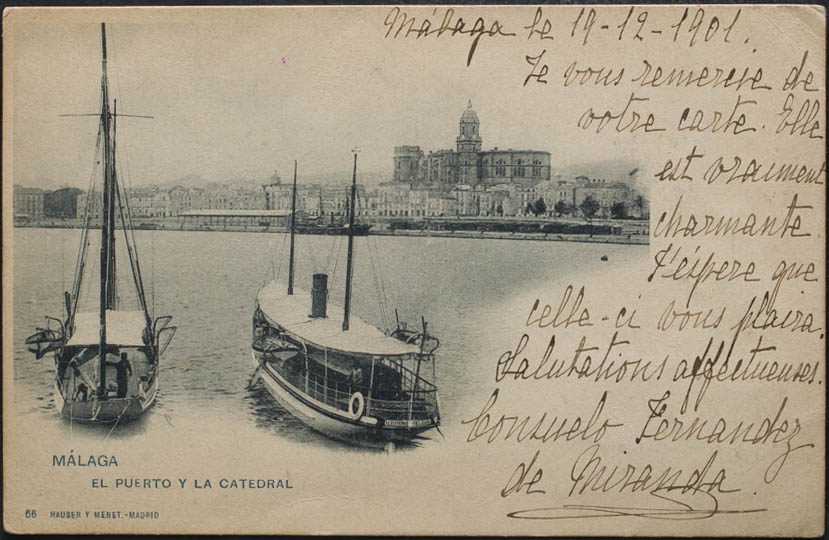 Málaga le 19-12-1901.
Je vous remercie de
votre carte. Elle
est vraiment
charmante.
J'éspere que
celle-ci vous plaira.
Salutations affectueuses.
Consuelo Fernandez
de Miranda.
MÁLAGA
EL PUERTO Y LA CATEDRAL
66 HAUSER Y MENET.-MADRID